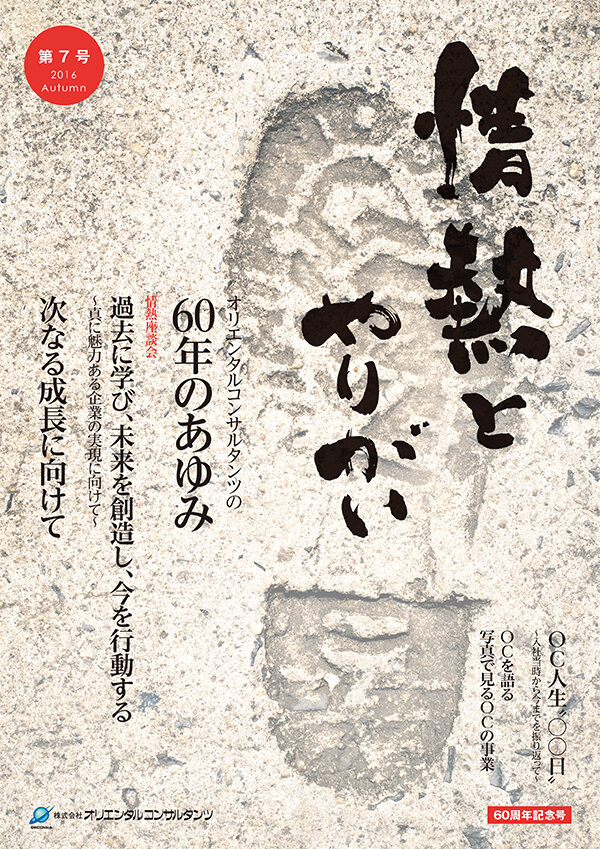 第7号
2016
Autumn
情熱と
やりがい
オリエンタルコンサルタンツの
60年のあゆみ
情熱座談会
過去に学び、未来を創造し、今を行動する
～真に魅力ある企業の実現に向けて～
次なる成長に向けて
OC人生〝〇〇日〟
～入社当時から今までを振り返って～
OCを語る
写真で見るOCの事業
ORICONSUL
株式会社オリエンタルコンサルタンツ
60周年記念号